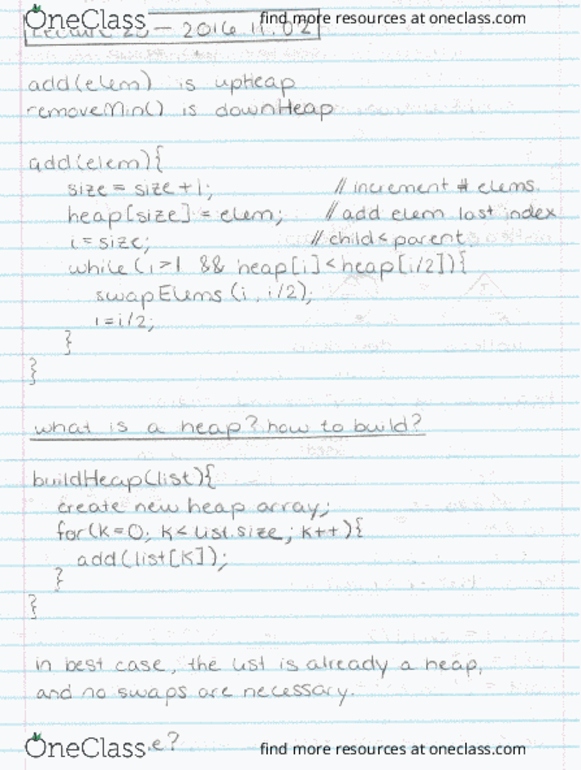 OneClass find more resources at oneclass.com
- 2016 11.02
add(elem) is upHeap
removeMin() is downHeap
add(elem){
size = size + 1; // increment # elems.
heap[size] = elem; // add elem last index
i = size; // child < parent
while (i>1 && heap[i] < heap[i/2]){
swapElems (i, i/2);
i = i/2;
}
}
what is a heap? how to build?
buildHeap(list){
create new heap array;
for(k=0; k < list.size; k++){
add(list[k]);
}
}
in best case, the list is already a heap,
and no swaps are necessary.
e?
OneClass find more resources at oneclass.com